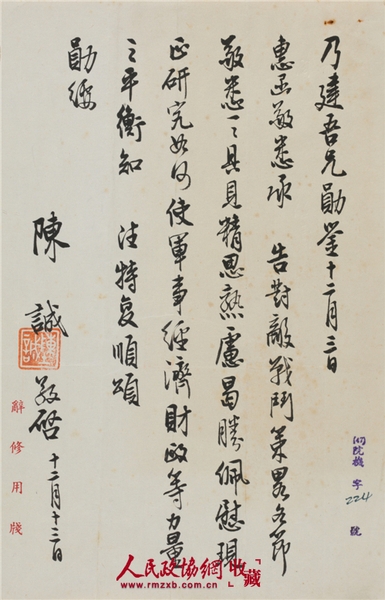 乃建吾兄勛鑒十二月三日
惠函敬悉承 告對敵戰鬥策畧各節
敬悉一一具見精思熟慮曷勝佩慰現
正研究如何使軍事經濟財政等力量
之平衡知 注特复順頌
勛綏
陳誠敬啓十二月十三日
辭修用牋
機字224號
人民政協網收藏
www.rmzxb.com.cn